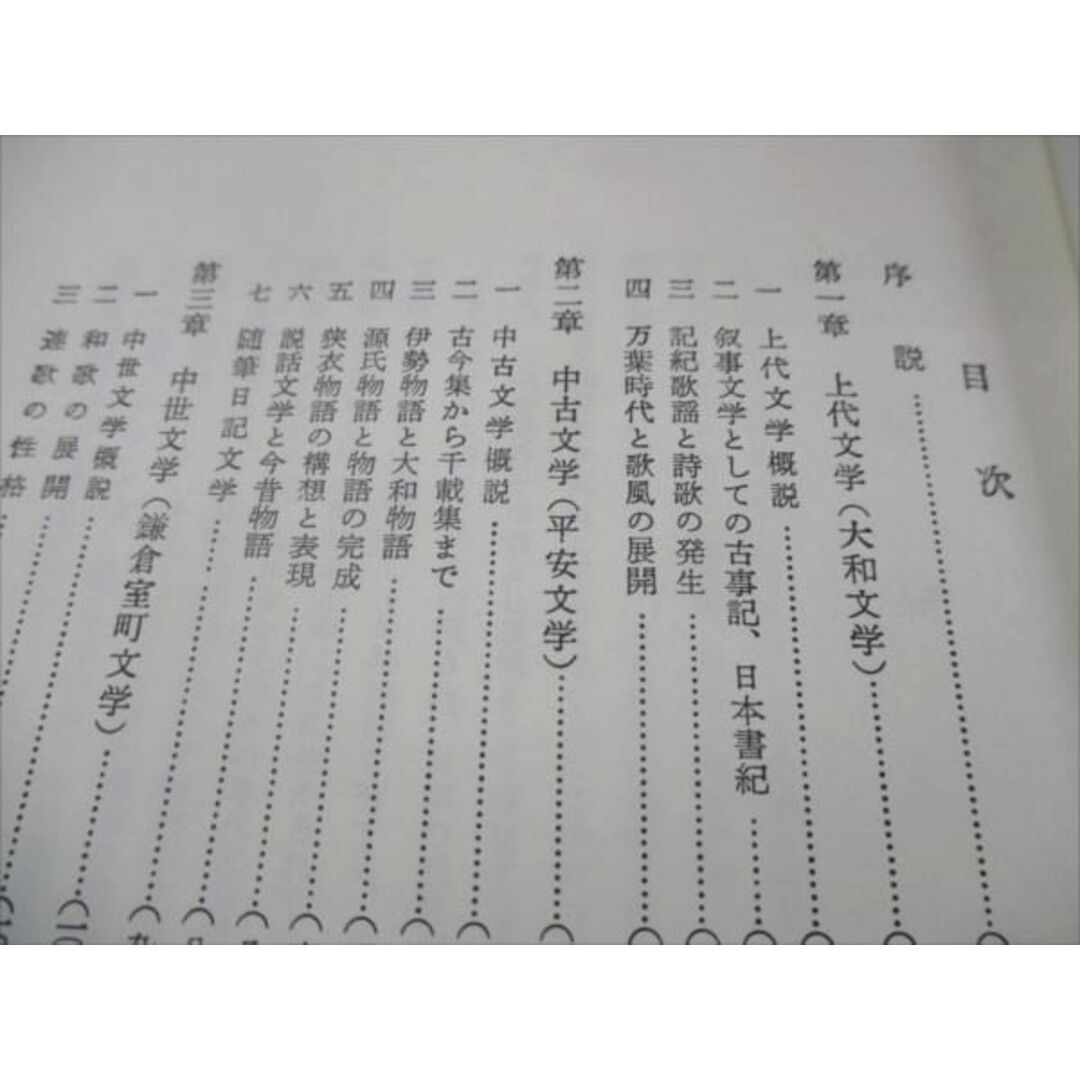 目次
序説
第一章 上代文学(大和文学)
一 上代文学概説
二 叙事文学としての古事記、日本書紀
三 記紀歌謡と詩歌の発生
四 万葉時代と歌風の展開
第二章 中古文学(平安文学)
一 中古文学概説
二 古今集から千載集まで
三 伊勢物語と大和物語
四 源氏物語と物語の完成
五 狭衣物語の構想と表現
六 説話文学と今昔物語
七 随筆日記文学
第三章 中世文学(鎌倉室町文学)
一 中世文学概説
二 和歌の展開
三 連歌の性格